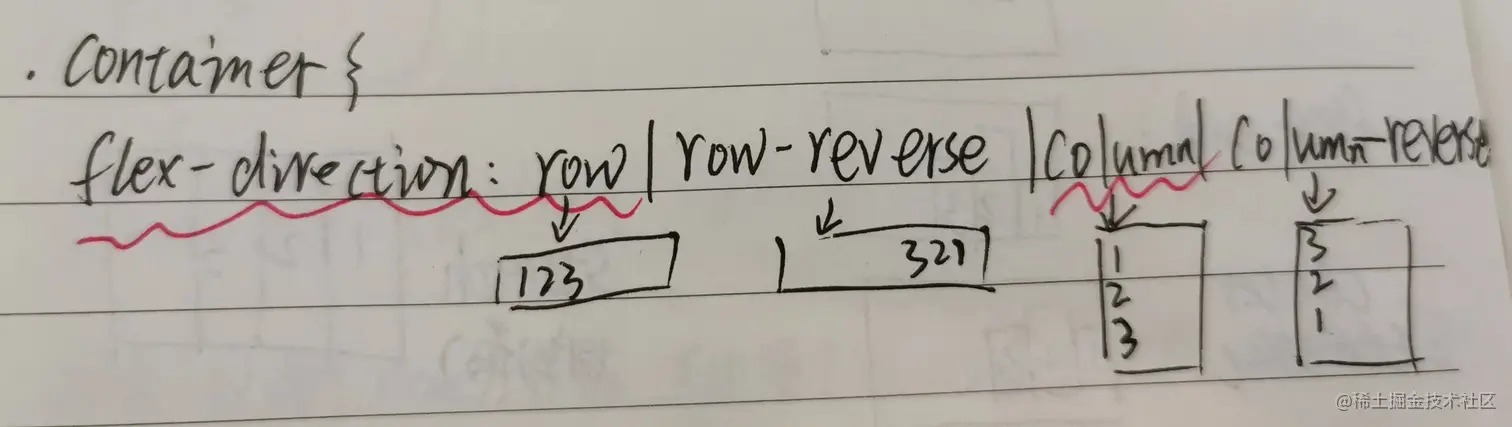 .container{
flex-direction: row | row-reverse | column | column-reverse
123 321 1 3
2 2
3 1
@稀土掘金技术社区